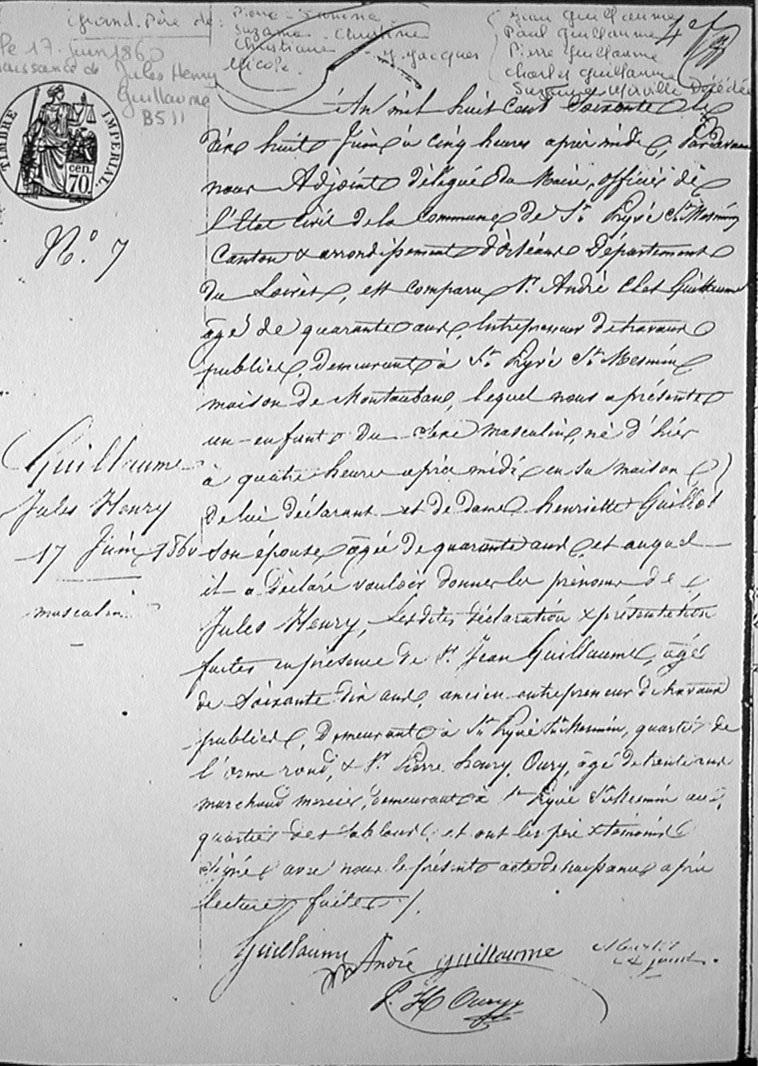 Grand-Père de :
Pierre - Simone
Suzanne - Christine
Christiane
Nicole
J. Jacques
Jean Guillaume
Paul Guillaume
Pierre Guillaume
Charles Guillaume
Suzanne Décédée
le 17 Juin 1860
naissance de Jules Henry
Guillaume
B511
TIMBRE IMPERIAL
70 cen.
N.° 7
Guillaume
Jules Henry
17 Juin 1860
masculin
L'An mil huit cent Soixante le
dix huit Juin à cinq heures après midi, Pardevant
nous Adjoint délégué du Maire, officier de
l'Etat Civil de la Commune de St. Pryvé St. Mesmin
Canton & arrondissement d'Orléans Département
du Loiret, est comparu Sr. André Guillaume
âgé de quarante ans, Entrepreneur de travaux
publics, demeurant à St. Pryvé St. Mesmin,
maison de Montauban, lequel nous a présenté
un enfant du sexe masculin, né d'hier
à quatre heures après midi en sa maison
De lui déclarant et de dame henriette Guillot
son épouse âgée de quarante ans, et auquel
il a déclaré vouloir donner les prénoms de
Jules Henry, Lesdites déclaration & présentation
faites en présence de Sr. Jean Guillaume, âgé
de Soixante dix ans, ancien entrepreneur de travaux
publics, Demeurant à St. Pryvé St. Mesmin, quartier de
l'orme rond, & Sr. Pierre henry Oury, âgé de trente
marchand mercier, demeurant à St. Pryvé St. Mesmin au
quartier des Sablons, et ont les père & témoins
Signé avec nous le présent acte de naissance après
lecture faite ./.
Guillaume
André Guillaume
adjoint
P. H. Oury